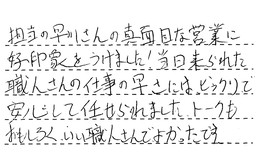 担当の早川さんの真面目な営業に
好印象をうけました!当日来られた
職人さんの仕事の早さには、ビックリで
安心して任せられました。トークも
おもしろく、いい職人さんでよかったです